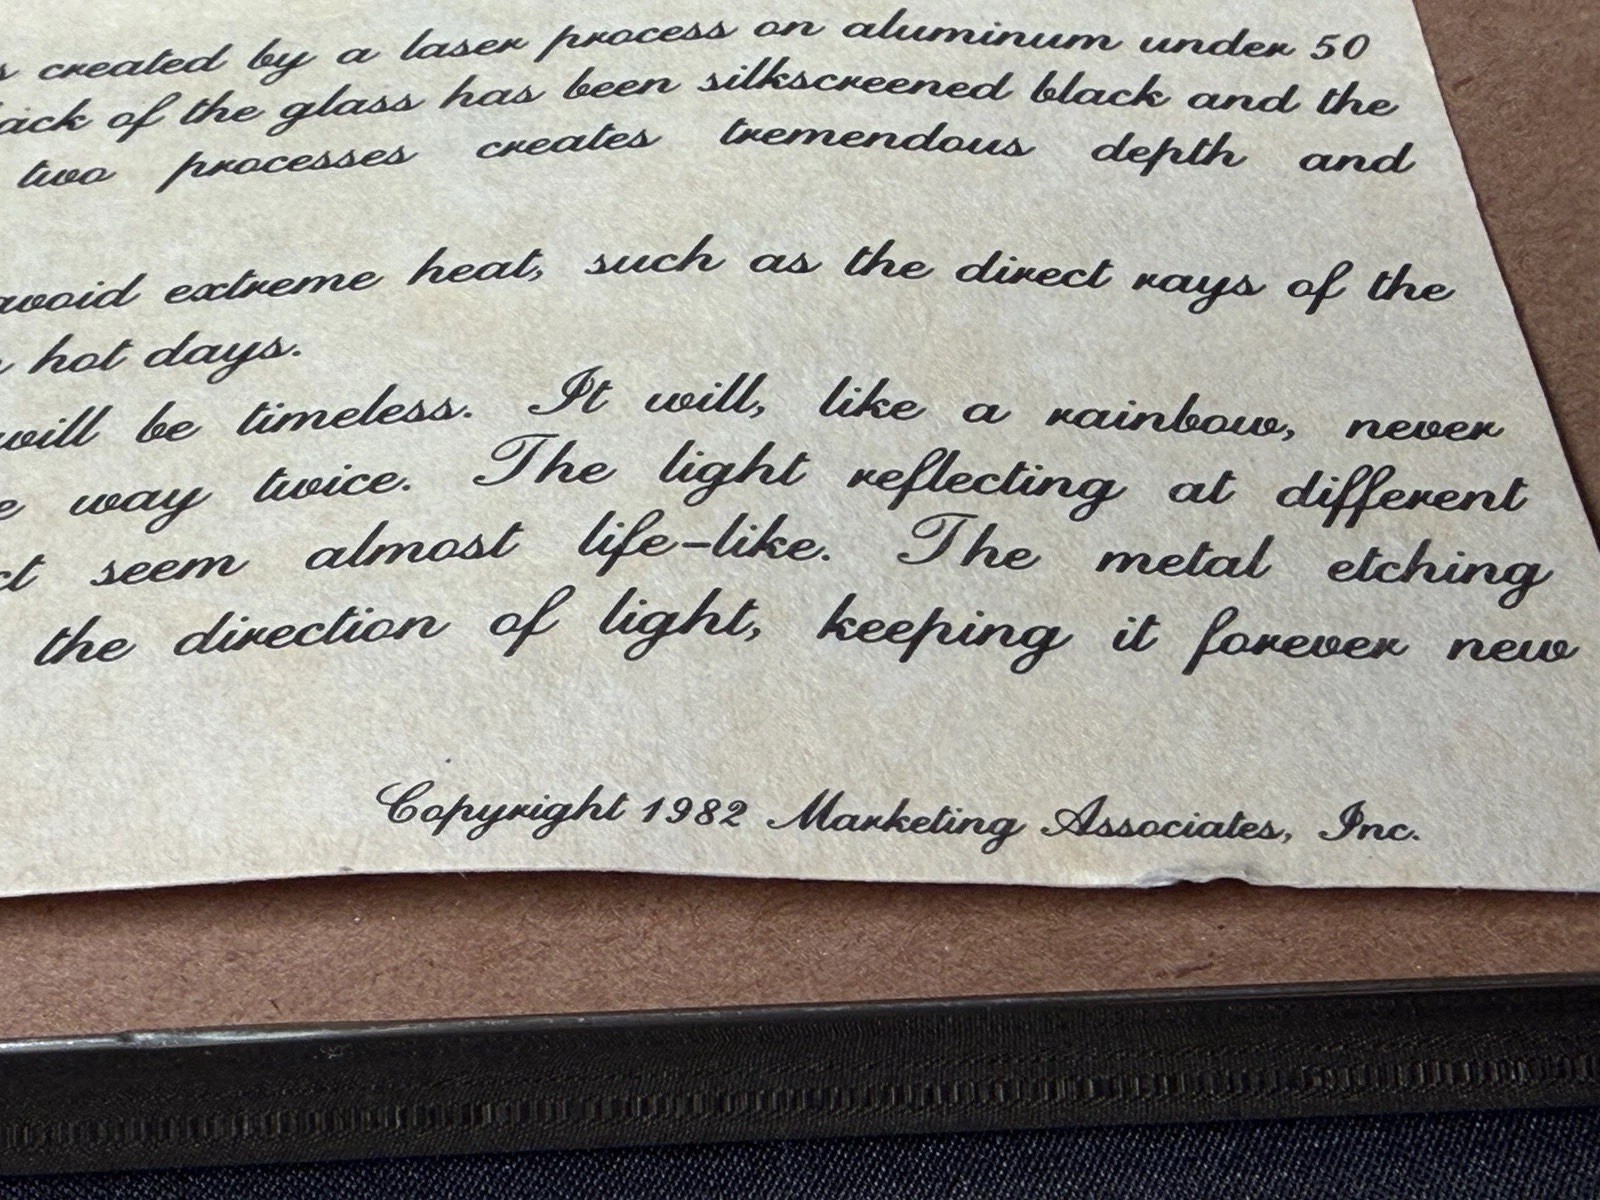 created by a laser process on aluminum under 50
of the glass has been silkscreened black and the
two processes creates tremendous depth and
avoid extreme heat, such as the direct rays of the
hot days.
will be timeless. It will, like a rainbow, never
way twice. The light reflecting at different
seem almost life-like. The metal etching
the direction of light, keeping it forever new
Copyright 1982 Marketing Associates, Inc.